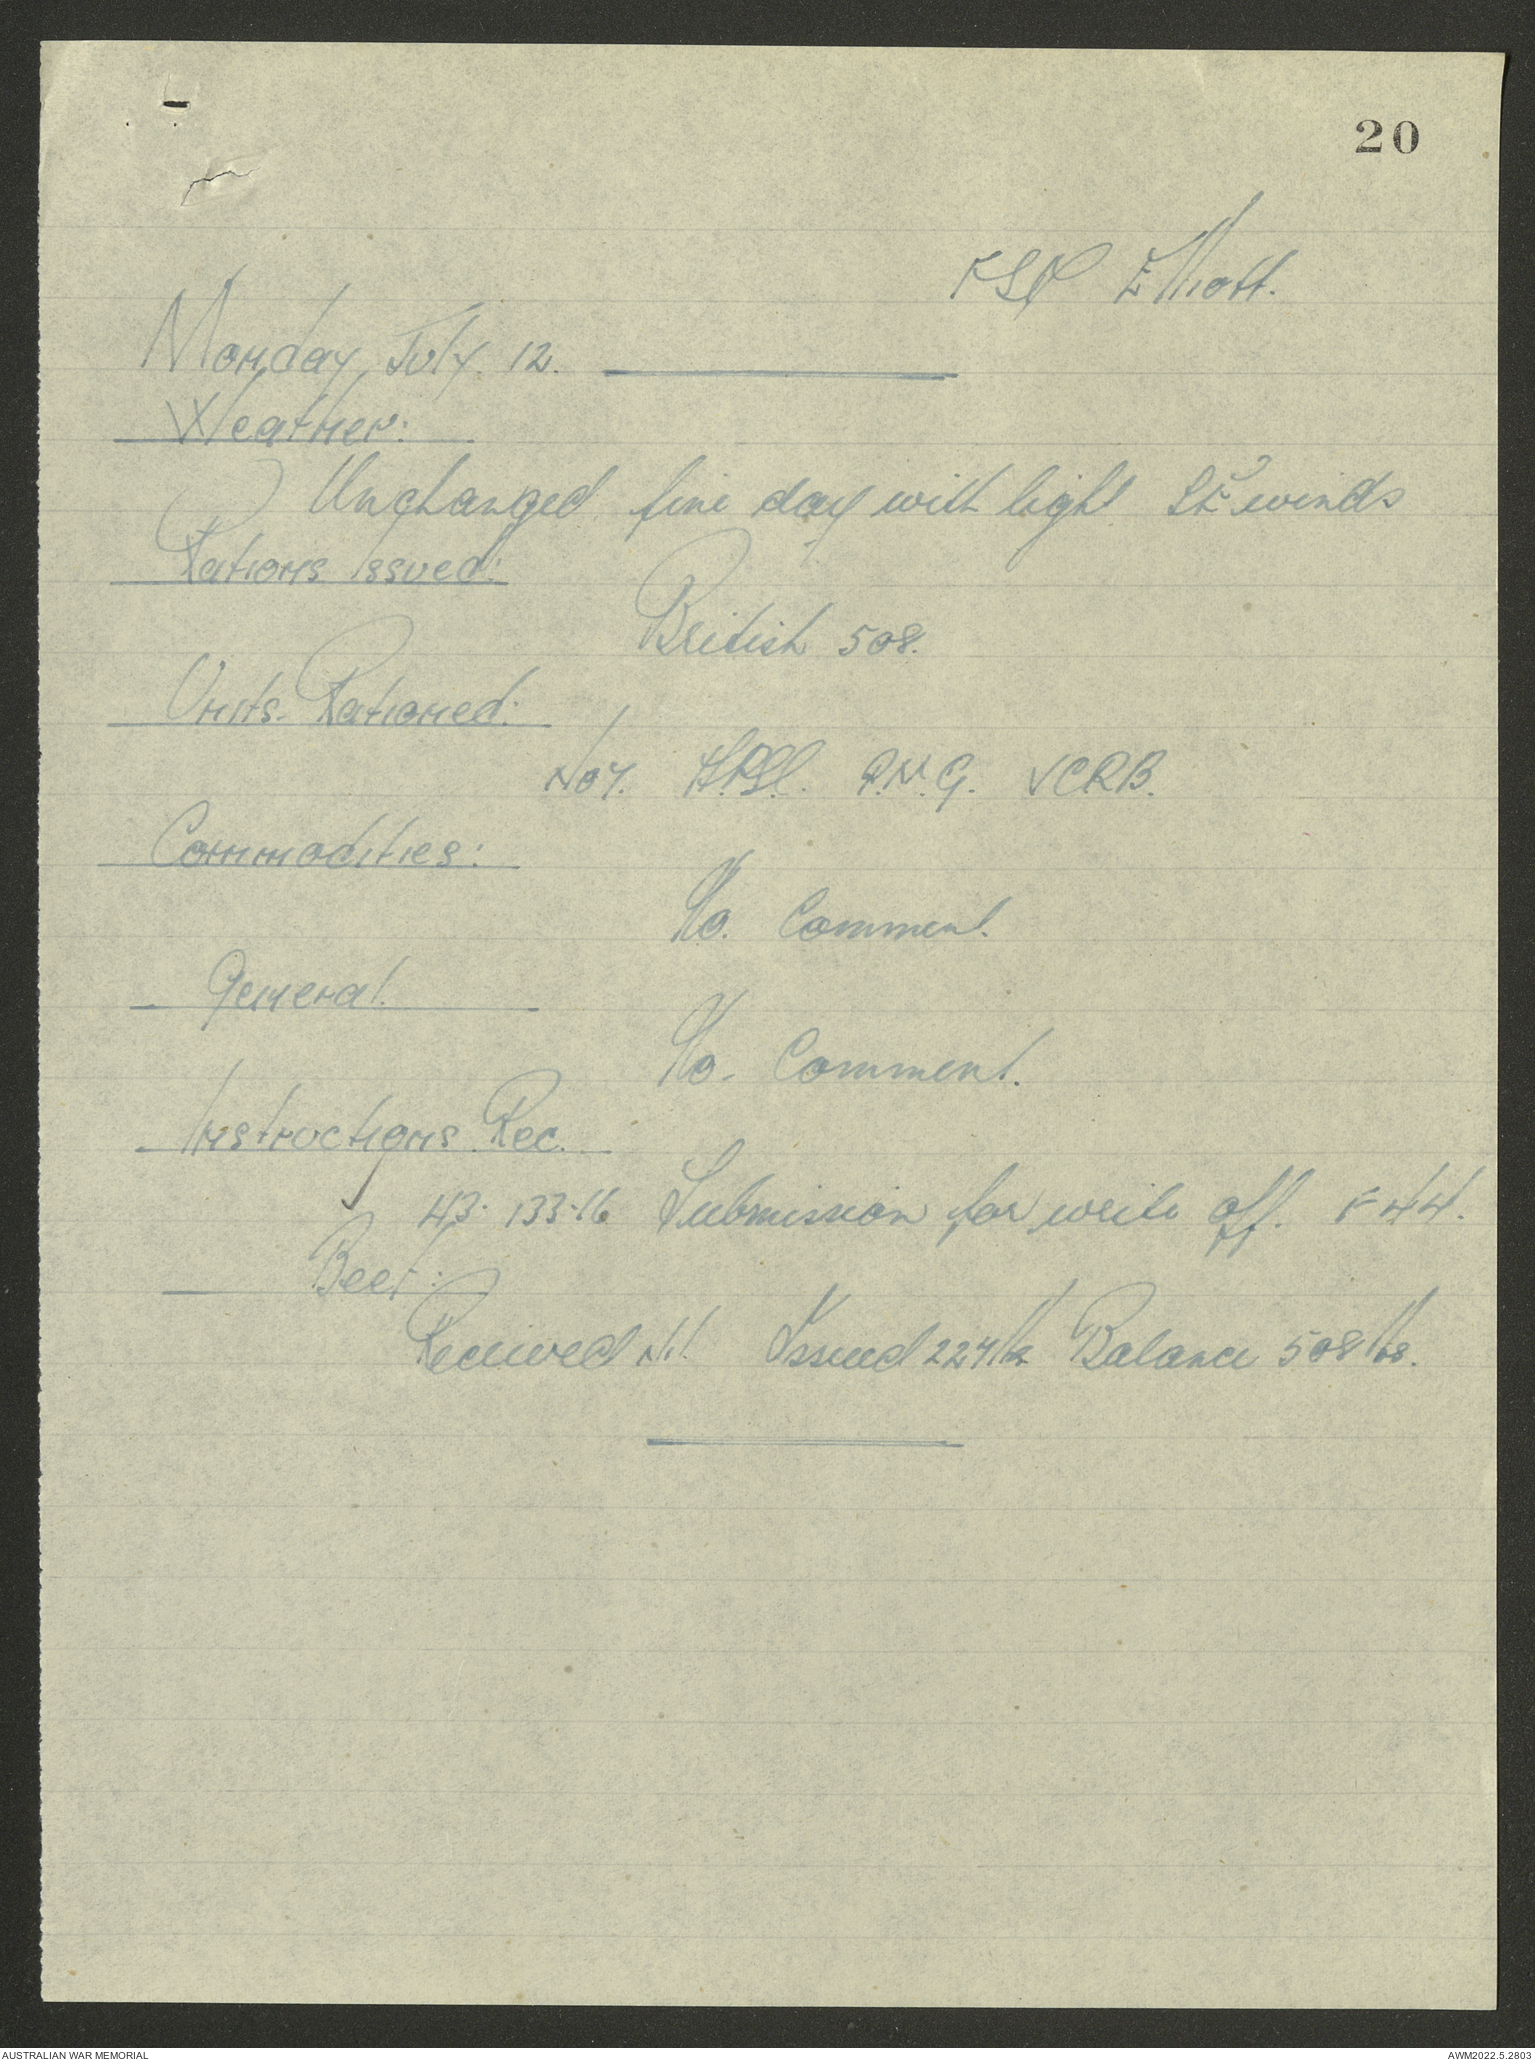 20
FSD Elliott.
Monday July. 12.
Weather:
Unchanged fine day with light SE winds
Rations Issued:
British 508.
Units Rationed:
No 7. P.N.G. VCRB.
Commodities:
No. Comment.
General.
No. Comment.
Instructions Rec.
43. 133.16 Submission for write off. F 44.
Beef:
Received Nil Issued 224lbs Balance 508lbs.
AUSTRALIAN WAR MEMORIAL
AWM2022.5.2803